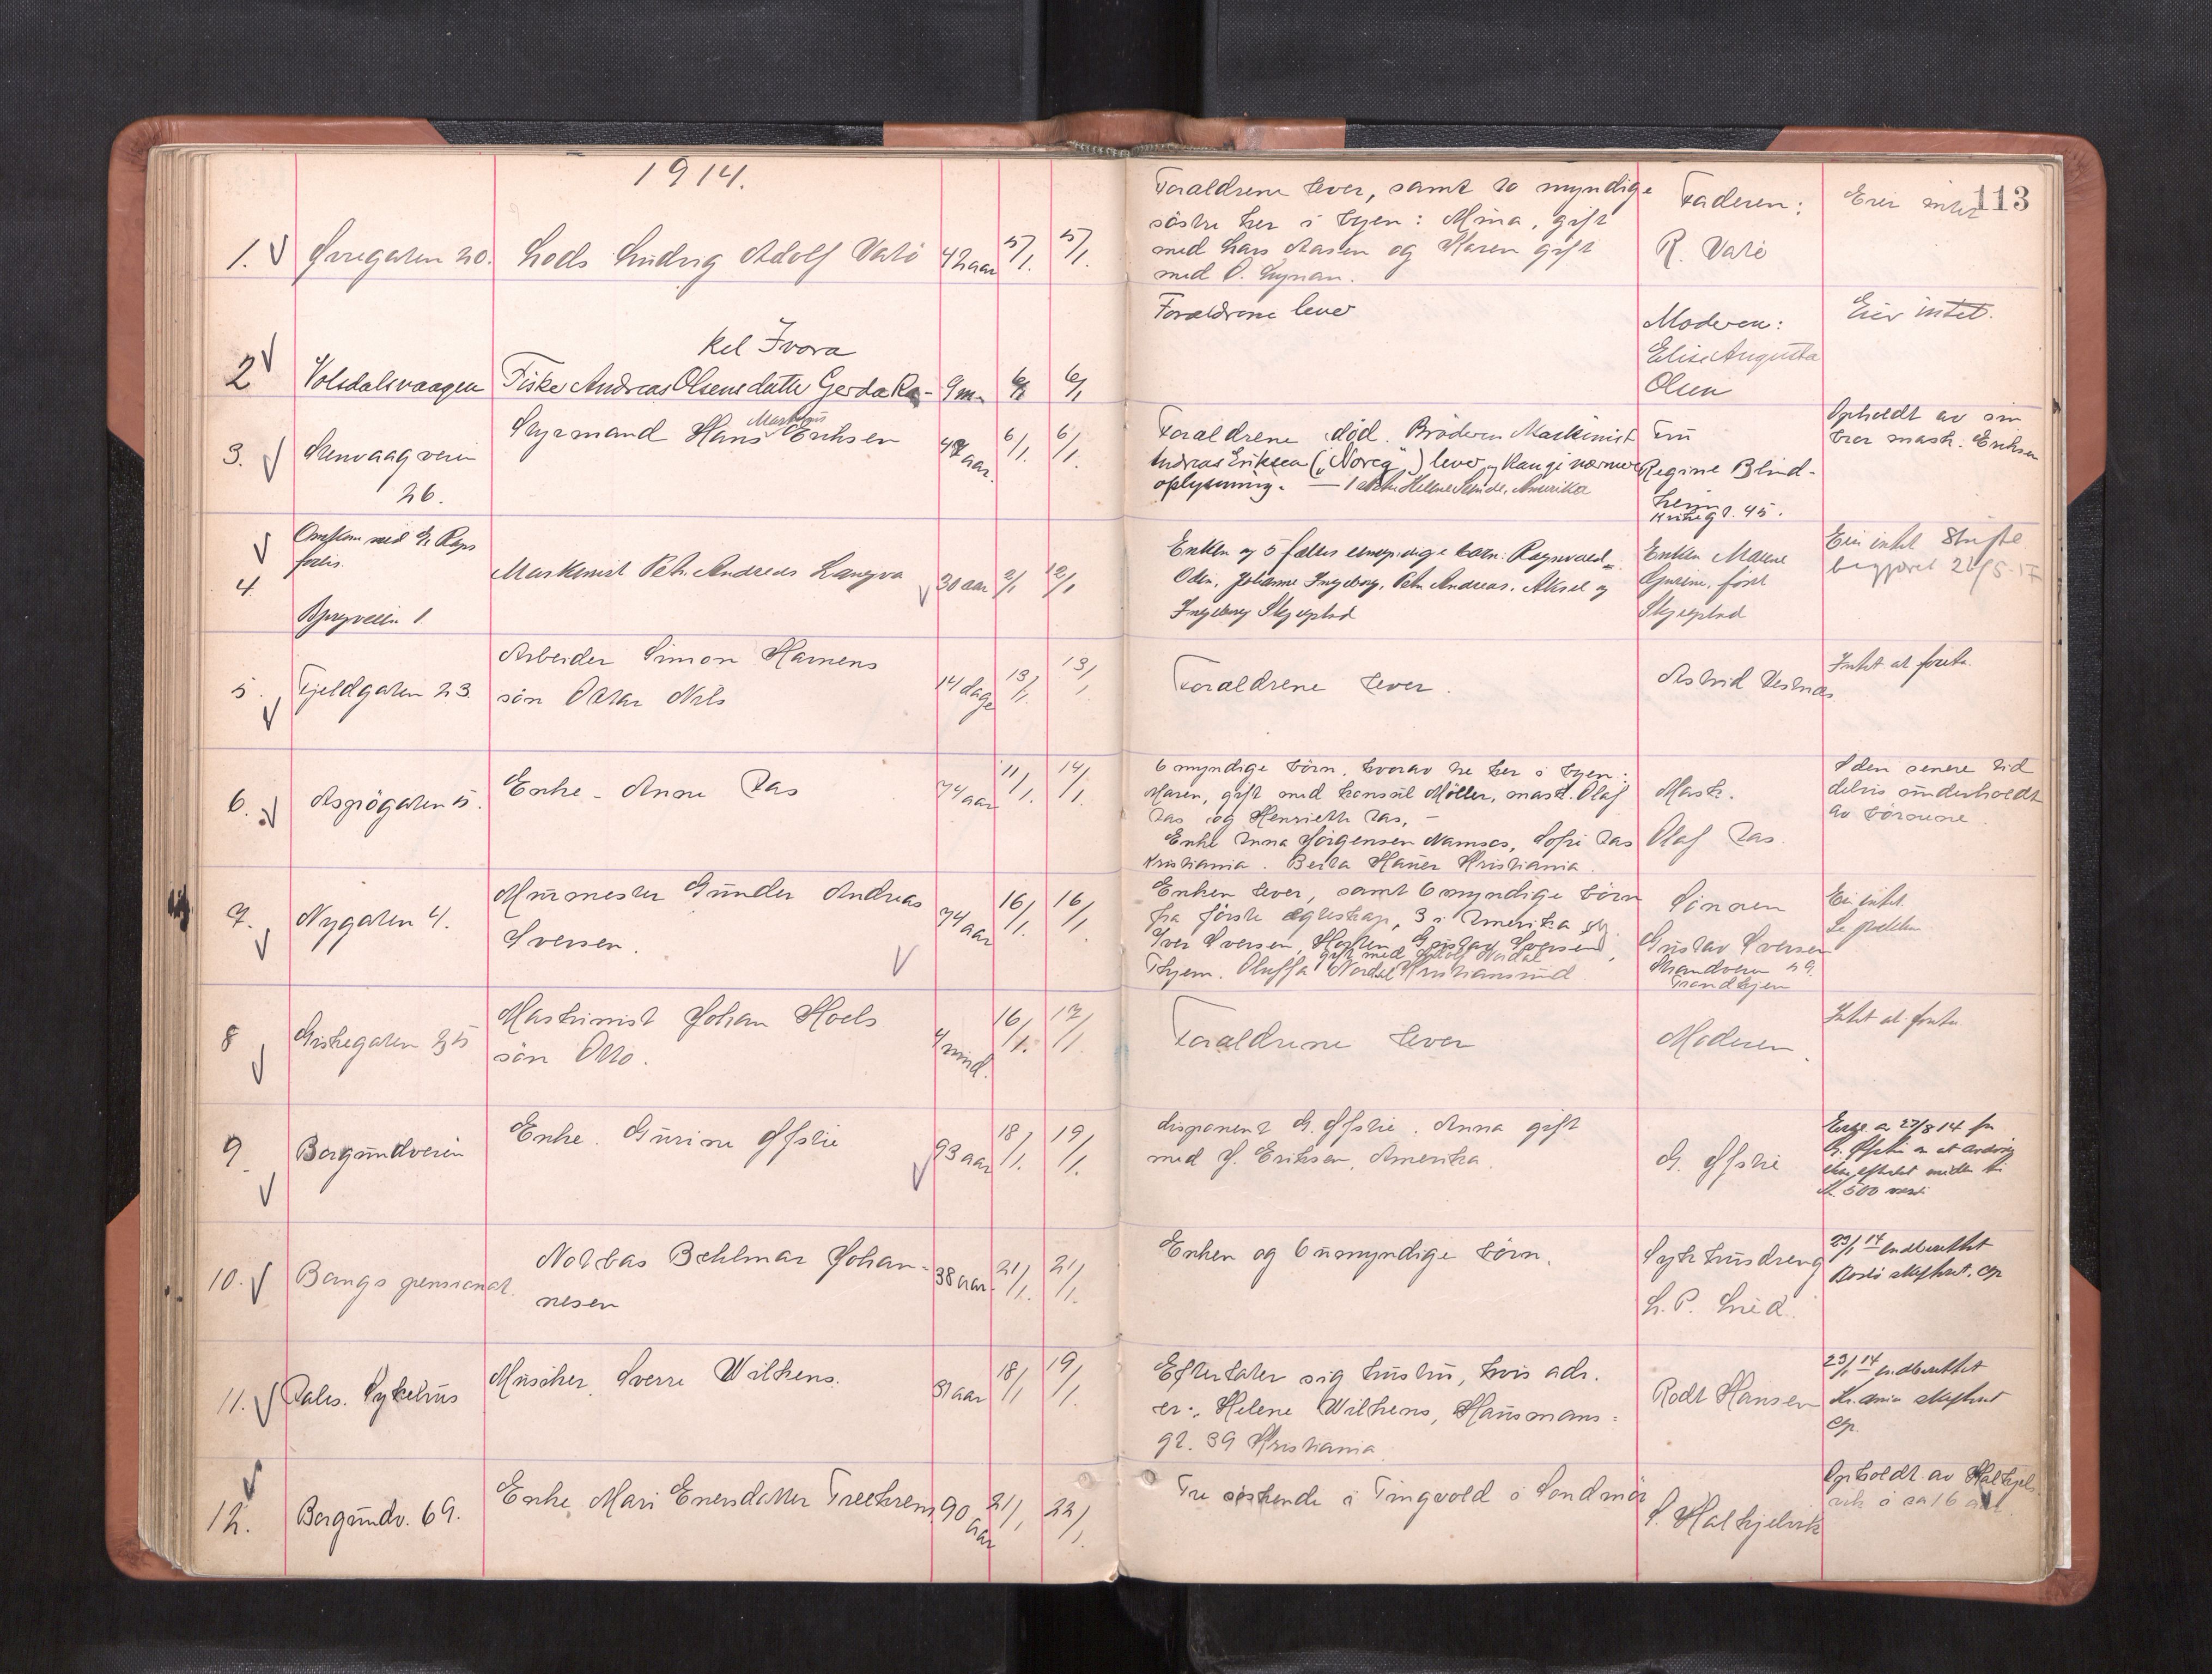 1914.
113
1. Øvregaten 20. Lods Ludvig Adolf Vatö 42 aar 5/1. 5/1.
Forældrene lever, samt to myndige
søstre her i byen: Mina, gift
med Lars Aasen og Karen gift
med O.
Faderen:
R. Vatö
Eier intet
2 Volsdalsvaagen
kel Ivora
Fisker Andreas Olsens datter Gerda Ra- 9 m. 6/1 6/1
Forældrene lever
Moderen:
Elise Augusta
Olsen
Eier intet.
3. Stenvaagveien
26.
Markus
Styrmand Hans Eriksen 47 aar. 6/1. 6/1.
Forældrene död. Broderen Maskinist
Andreas Eriksen ("Noreg") lever, kan gi nærmere
oplysning. — 1 söster Helene, Amerika
Fru
Regine Blind-
heim
Kirkegt. 45.
Opholdt av sin
bror mask. Eriksen
4. Omkom med
forlis.
Bjergveien 1.
Maskinist Petr Andreas Langva 30 aar 2/1 12/1
Enken og 5 fælles umyndige barn: Ragnvald
Odin, Johanne Ingeborg, Petr Andreas, Aksel og
Ingeborg
Enken Marene
Gurine, født
Eier intet Skifte
begjæret
5. Fjeldgaten 23.
Arbeider Simon Hamens
sön Oskar Nils 14 dage 13/1. 13/1
Forældrene lever.
Astrid Vestnes
Intet at foreta.
6. Aspögaten 5. Enke - Anne Ras 74 aar 11/1. 14/1.
6 myndige börn, hvorav tre her i byen:
Maren, gift med konsul Möller, mask. Olaf
Ras og Henriette Ras, -
Enke Anna Jörgensen Namsos, Sofie Ras
Kristiania. Berta Hauer Kristiania
Mask.
Olaf Ras.
I den senere tid
delvis underholdt
av börnene.
7. Nygaten 4.
Murmester Gunder Andreas
Iversen. 74 aar 16/1. 16/1.
Enken lever, samt 6 myndige börn
fra første egteskap, 3 i Amerika og
Iver Iversen, Gustav Iversen,
gift med Adolf Nordal
Thjem. Oluffa Nordal Kristiansund
Sönnen
Gustav Iversen
Strandveien 29.
Trondhjem
Eier intet.
8 Giskegaten 35
Maskinist Johan Hoels
sön Otto. 4 mnd. 16/1. 17/1.
Forældrene lever
Moderen.
Intet at foreta
9. Borgundveien Enke. Gurine Öfstie 93 aar 18/1. 19/1.
disponent G. Öfstie. Anna gift
med J. Eriksen, Amerika.
G. Öfstie
10. Bangs pensionat.
Notbas Behlmar Johan-
nesen 38 aar. 21/1. 21/1.
Enken og 6 umyndige börn.
Sykehusdreng
L. P. Lied.
29/1 14 indberettet
Bodö skifteret.
11. Aales. Sykehus Musiker. Sverre Wilkens. 31 aar 18/1 19/1.
Efterlater sig hustru, hvis adr.
er: Helene Wilkens, Hausmans=
gt. 39 Kristiania
Rodt Hansen
29/1 14 indberettet
Kr.ania skifteret
12. Borgundv. 69. Enke Mari Enersdatter Treekrem 90 aar 21/1. 22/1.
Tre söskende i Tingvold i Söndmör
S. Halkjelsvik
Opholdt av Halkjels-
vik i ca 16 aar